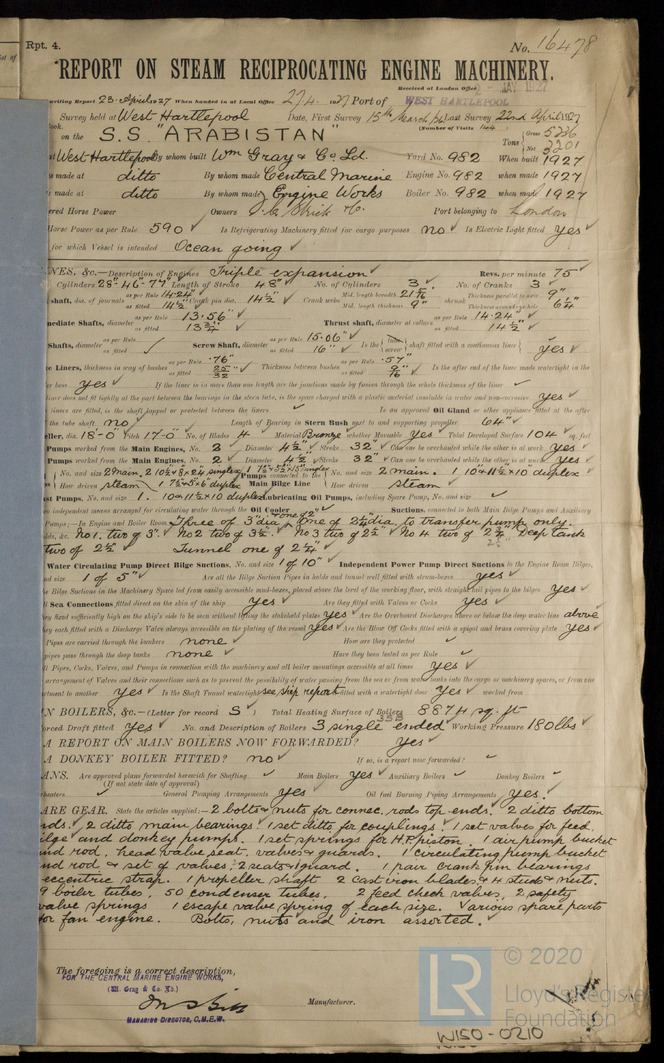 Rpt. 4.
No. 16478
REPORT ON STEAM RECIPROCATING ENGINE MACHINERY.
Received at London Office
JAN 1927
writing Report 23 April 1927 When handed in at Local Office 27/4 1927 Port of WEST HARTLEPOOL
Survey held at West Hartlepool Date, First Survey 15th March/26 Last Survey 22nd April 1927
(Number of Visits 144
on the S.S. "ARABISTAN" Tons Gross 5226 Net 3201
West Hartlepool By whom built Wm Gray & Co Ld. Yard No. 982 When built 1927
made at ditto By whom made Central Marine Engine No. 982 when made 1927
made at ditto By whom made Engine Works Boiler No. 982 when made 1927
ered Horse Power Owners Strick & Co. Port belonging to London
Horse Power as per Rule 590 Is Refrigerating Machinery fitted for cargo purposes no Is Electric Light fitted yes
for which Vessel is intended Ocean going
NES, &c.—Description of Engines Triple expansion Revs. per minute 75
Cylinders 28"-46"-77" Length of Stroke 48" No. of Cylinders 3 No. of Cranks 3
shaft, dia. of journals as per Rule 14·24" as fitted 14½" Crank pin dia. 14½" Crank webs Mid. length breadth 21⅝" Mid. length thickness 9" shrunk Thickness parallel to axis 9" Thickness around eyehole 6¼"
mediate Shafts, diameter as per Rule 13·56" as fitted 13¾" Thrust shaft, diameter at collars as per Rule 14·24" as fitted 14½"
Shafts, diameter as per Rule as fitted Screw Shaft, diameter as per Rule 15·06" as fitted 16" Is the tube screw shaft fitted with a continuous liner yes
e Liners, thickness in way of bushes as per Rule ·76" as fitted 25/32" Thickness between bushes as per Rule ·57" as fitted 9/16" Is the after end of the liner made watertight in the
er boss yes If the liner is in more than one length are the junctions made by fusion through the whole thickness of the liner
liner does not fit tightly at the part between the bearings in the stern tube, is the space charged with a plastic material insoluble in water and non-corrosive yes
liners are fitted, is the shaft lapped or protected between the liners Is an approved Oil Gland or other appliance fitted at the after
the tube shaft no Length of Bearing in Stern Bush next to and supporting propeller 64"
eller, dia. 18'-0" Pitch 17'-0" No. of Blades 4 Material Bronze whether Moveable yes Total Developed Surface 104 sq. feet
Pumps worked from the Main Engines, No. 2 Diameter 4½" Stroke 32" Can one be overhauled while the other is at work yes
Pumps worked from the Main Engines, No. 2 Diameter 4½" Stroke 32" Can one be overhauled while the other is at work yes
No. and size 2 main. Pumps connected to the Main Bilge Line No. and size 2 main. 1 10"×11½"×10" duplex
How driven steam How driven steam
st Pumps, No. and size 1. 10×11½×10 duplex Lubricating Oil Pumps, including Spare Pump, No. and size
independent means arranged for circulating water through the Oil Cooler Suctions, connected to both Main Bilge Pumps and Auxiliary
Pumps;—In Engine and Boiler Room Three of 3" dia & one of 2" One of 2½" dia, to transfer pump only.
No 1. two of 3". No 2 two of 3½". No 3 two of 2½" No 4 two of 2¾" Deep tank
two of 2½" Tunnel one of 2¼"
Water Circulating Pump Direct Bilge Suctions, No. and size 1 of 10" Independent Power Pump Direct Suctions to the Engine Room Bilges,
nd size 1 of 5" Are all the Bilge Suction Pipes in holds and tunnel well fitted with strum-boxes yes
Bilge Suctions in the Machinery Space led from easily accessible mud-boxes, placed above the level of the working floor, with straight tail pipes to the bilges yes
Sea Connections fitted direct on the skin of the ship yes Are they fitted with Valves or Cocks yes
they fixed sufficiently high on the ship's side to be seen without lifting the stokehold plates yes Are the Overboard Discharges above or below the deep water line above
they each fitted with a Discharge Valve always accessible on the plating of the vessel yes Are the Blow Off Cocks fitted with a spigot and brass covering plate yes
Pipes are carried through the bunkers none How are they protected
pipes pass through the deep tanks none Have they been tested as per Rule
ll Pipes, Cocks, Valves, and Pumps in connection with the machinery and all boiler mountings accessible at all times yes
arrangement of Valves and their connections such as to prevent the possibility of water passing from the sea or from water tanks into the cargo or machinery spaces, or from one
rtment to another yes Is the Shaft Tunnel watertight see ship report fitted with a watertight door yes worked from
IN BOILERS, &c.—(Letter for record S Total Heating Surface of Boilers 8874 sq. ft
orced Draft fitted yes No. and Description of Boilers 3 single ended Working Pressure 180 lbs
A REPORT ON MAIN BOILERS NOW FORWARDED? yes
A DONKEY BOILER FITTED? no If so, is a report now forwarded?
ANS. Are approved plans forwarded herewith for Shafting Main Boilers yes Auxiliary Boilers Donkey Boilers
(If not state date of approval)
heaters General Pumping Arrangements yes Oil fuel Burning Piping Arrangements yes.
ARE GEAR. State the articles supplied:— 2 bolts & nuts for connec. rods top ends. 2 ditto bottom
nds. 2 ditto main bearings. 1 set ditto for couplings. 1 set valves for feed
ilge and donkey pumps. 1 set springs for H.P. piston. 1 air pump bucket
and rod, head valve seat, valves & guards. 1 circulating pump bucket
and rod & set of valves, 2 seats & 1 guard. 1 pair crank pin bearings
eccentric strap. 1 propeller shaft 2 cast iron blades & 4 studs & nuts.
9 boiler tubes, 50 condenser tubes. 2 feed check valves, 2 safety
valve springs 1 escape valve spring of each size. Various spare parts
for fan engine. Bolts, nuts and iron assorted.
The foregoing is a correct description,
FOR THE CENTRAL MARINE ENGINE WORKS,
(Wm. Gray & Co. Ld.)
Manufacturer.
MANAGING DIRECTOR, C.M.E.W.
© 2020
LR
Lloyd's Register
Foundation
W150-0210